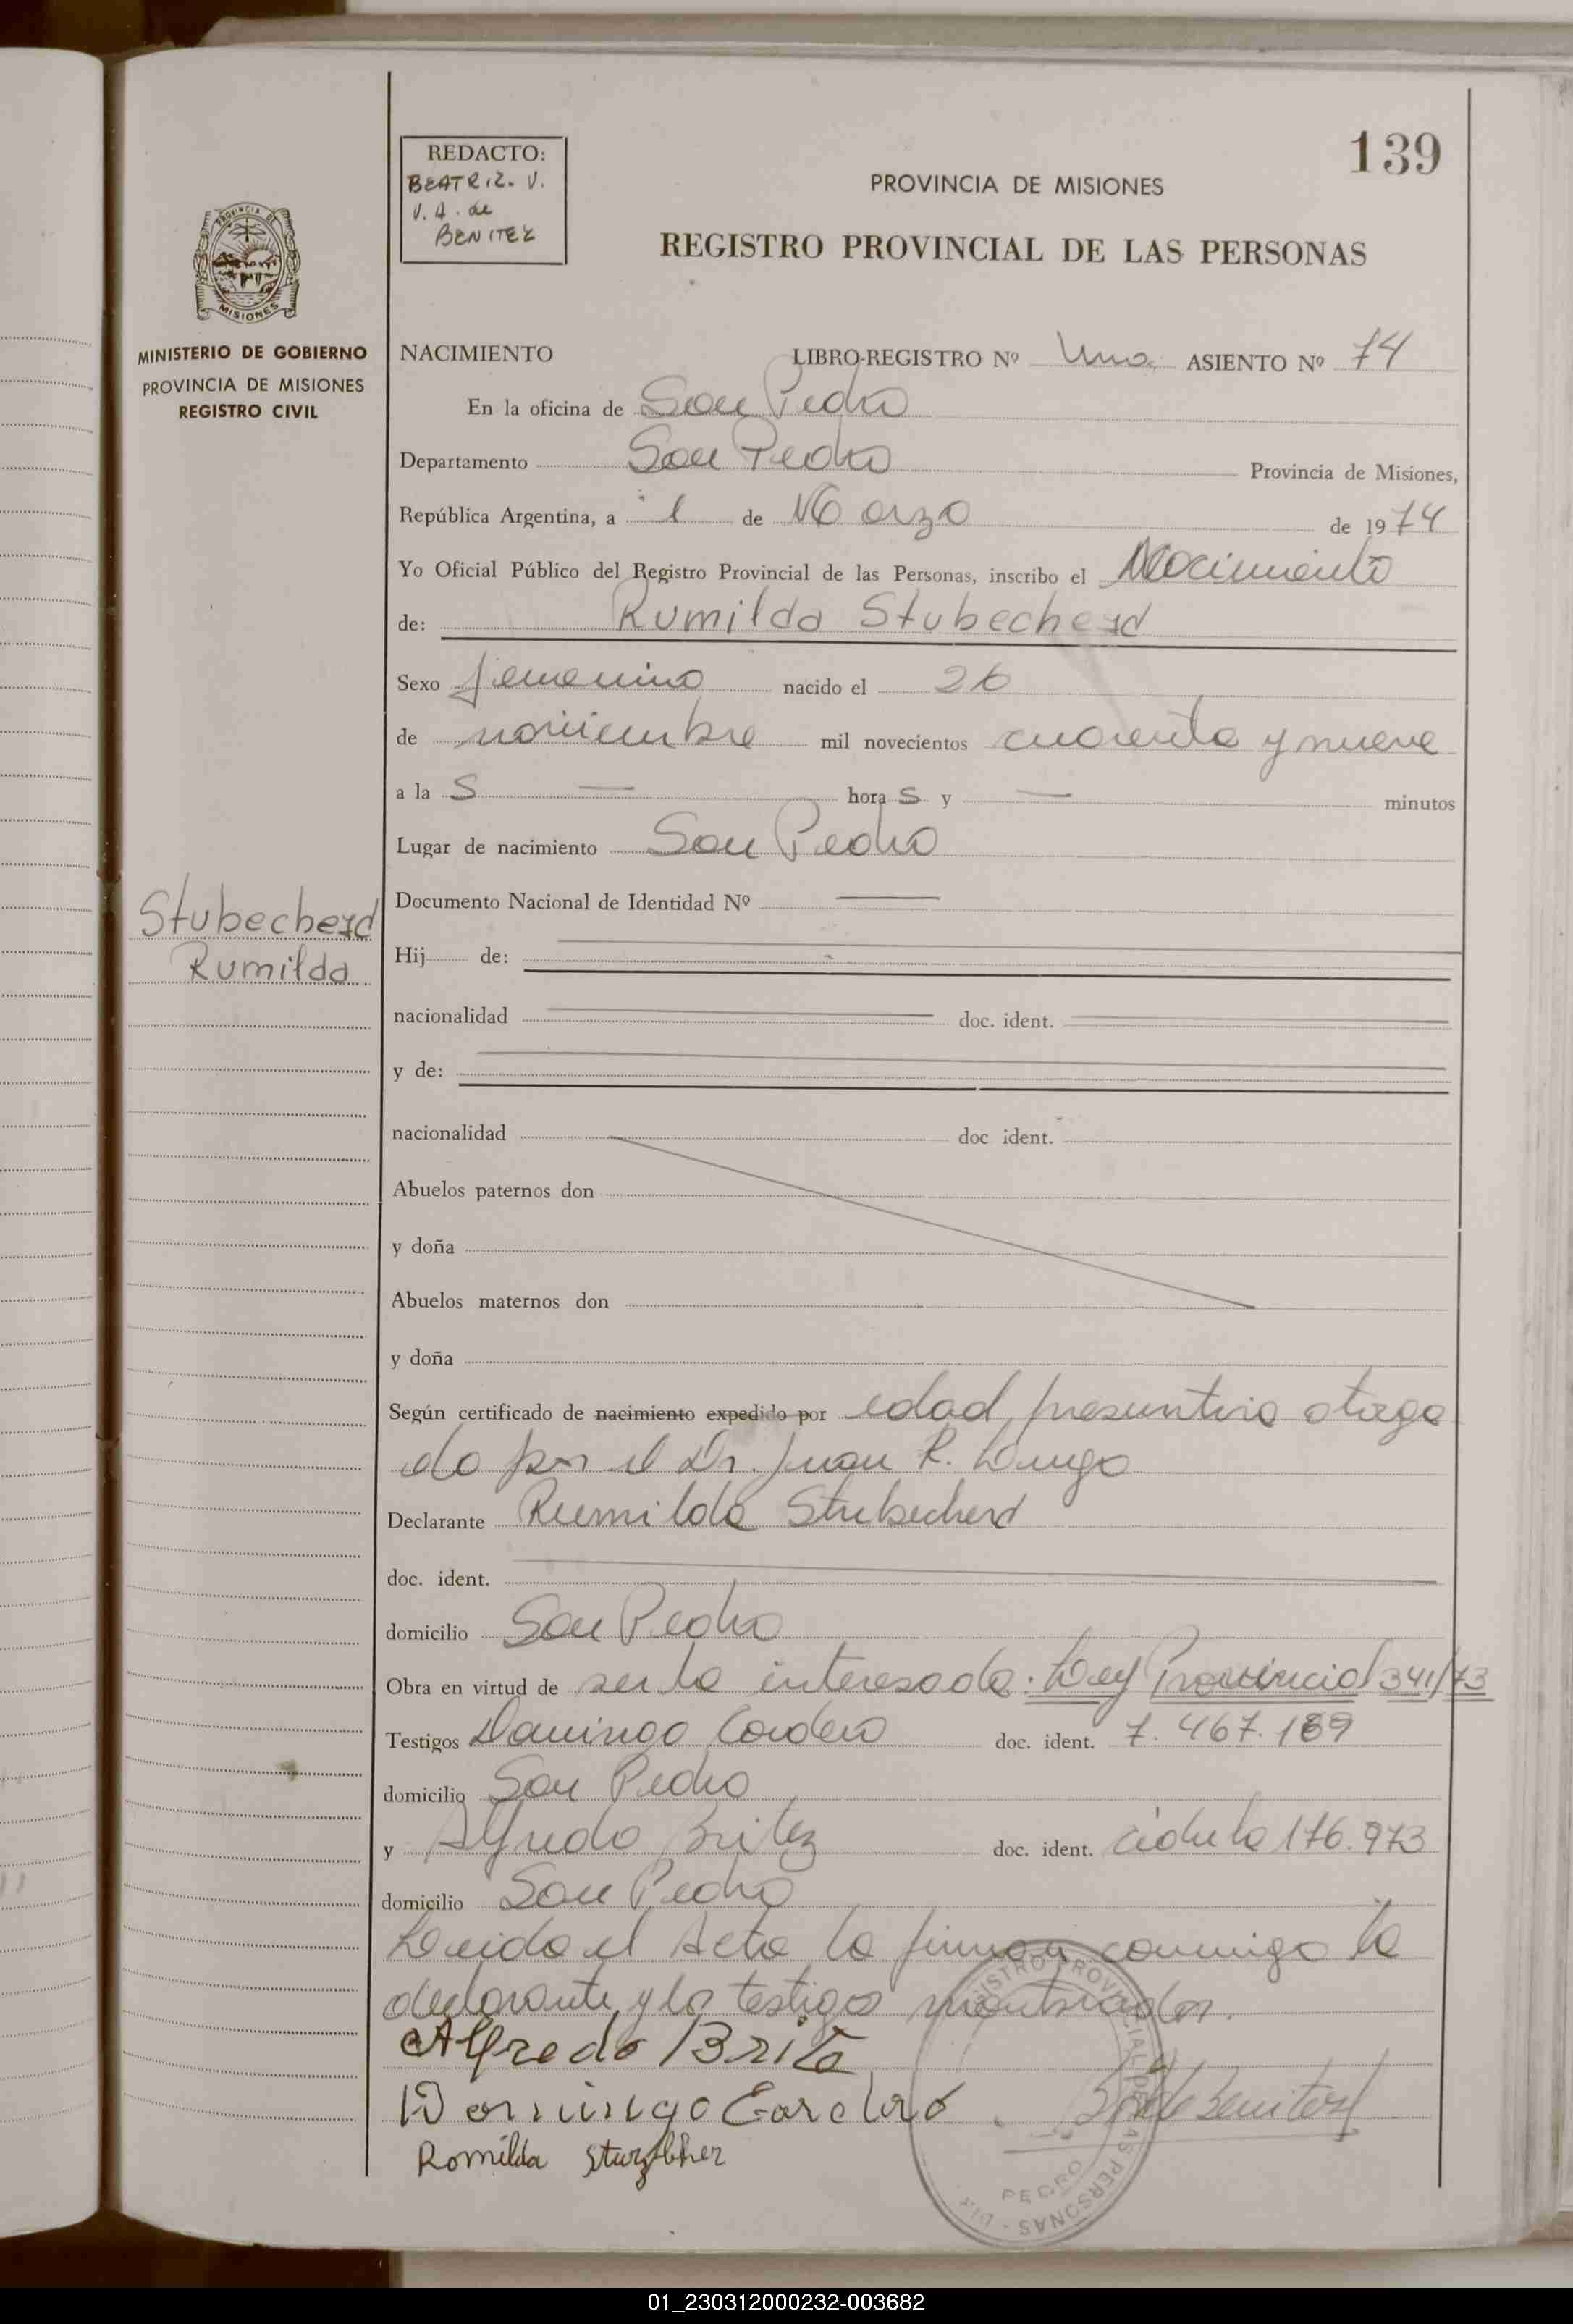 139
REDACTO:
BEATRIZ. V.
V. A. de
BENITEZ
PROVINCIA DE MISIONES
REGISTRO PROVINCIAL DE LAS PERSONAS
PROVINCIA DE
MISIONES
MINISTERIO DE GOBIERNO
PROVINCIA DE MISIONES
REGISTRO CIVIL
NACIMIENTO LIBRO-REGISTRO Nº Uno. ASIENTO Nº 74
En la oficina de San Pedro
Departamento San Pedro Provincia de Misiones,
República Argentina, a 1 de Marzo de 1974
Yo Oficial Público del Registro Provincial de las Personas, inscribo el Nacimiento
de: Rumilda Stubecherd
Sexo femenino nacido el 26
de noviembre mil novecientos cuarenta y nueve
a la s — hora s y — minutos
Lugar de nacimiento San Pedro
Documento Nacional de Identidad Nº —
Stubecherd
Rumilda
Hij de:
nacionalidad doc. ident.
y de:
nacionalidad doc ident.
Abuelos paternos don
y doña
Abuelos maternos don
y doña
Según certificado de nacimiento expedido por edad presuntiva otorga
do por el Dr. Juan R. Lugo
Declarante Rumilda Stubecherd
doc. ident.
domicilio San Pedro
Obra en virtud de ser la interesada. Ley Provincial 341/73
Testigos Domingo Cordero doc. ident. 7.467.189
domicilio San Pedro
y Alfredo Britez doc. ident. cédula 176.973
domicilio San Pedro
Leida el Acta la firman conmigo la
declarante y los testigos
Alfredo Brite
Domingo
Romilda
REGISTRO PROVINCIAL DE LAS PERSONAS
PEDRO
01_230312000232-003682